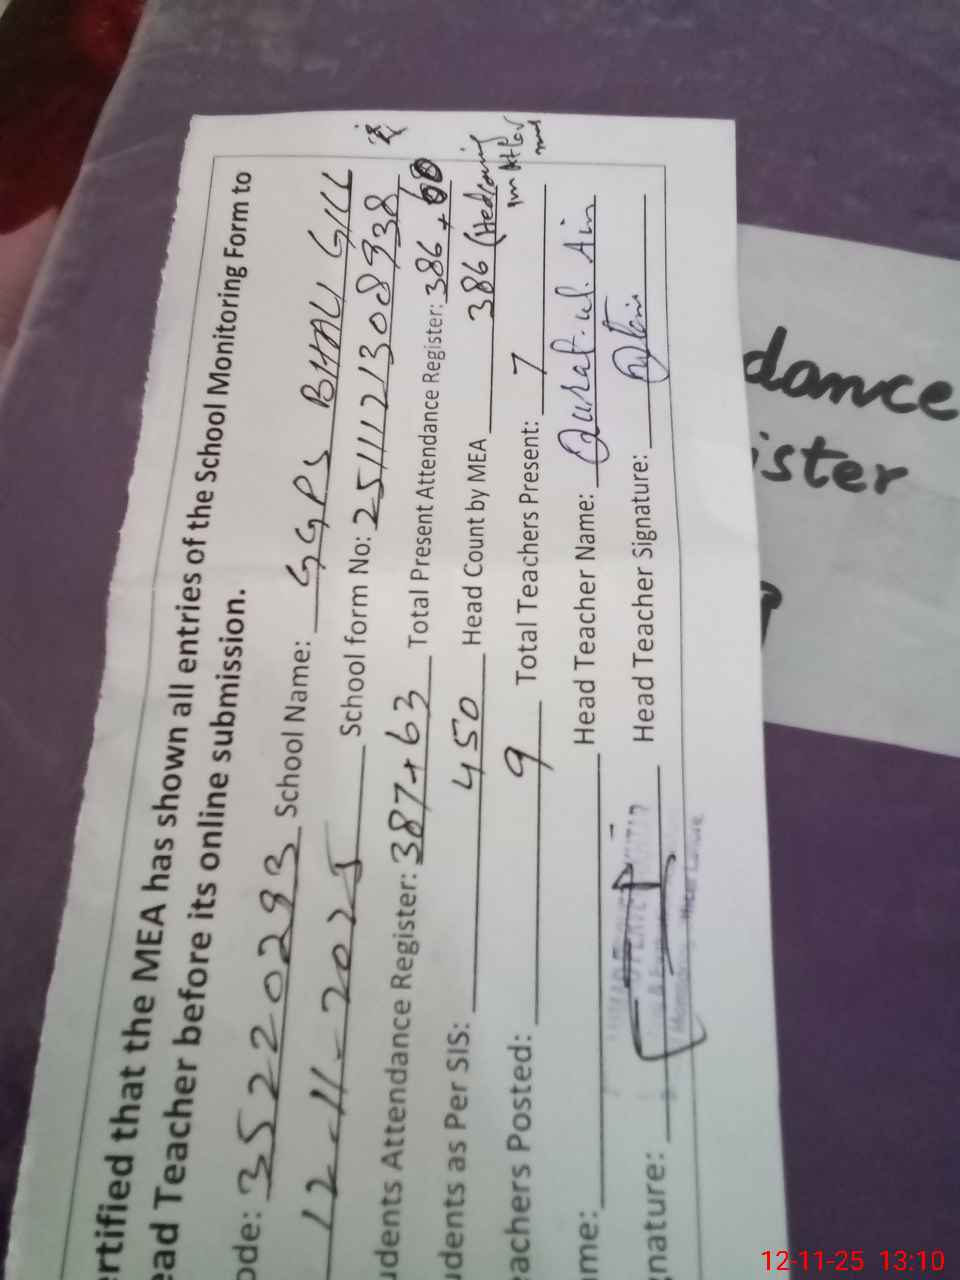 ertified that the MEA has shown all entries of the School Monitoring Form to
ead Teacher before its online submission.
ode: 35220293 School Name: GGPS BHALI GILL
12-11-2025 School form No: 2511121308938
udents Attendance Register: 387+63 Total Present Attendance Register: 386+
udents as Per SIS: 450 Head Count by MEA 386
eachers Posted: 9 Total Teachers Present: 7
ame: Head Teacher Name: Qurat-ul-Ain
gnature: Head Teacher Signature:
dance
ister
12-11-25 13:10